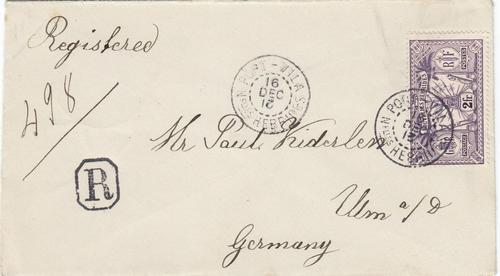 Registered
498
PORT-VILA
16
DEC
Nles HEBRIDES
RF
POSTES
2 Fr.
R
Mr Paul Kiderlen
Ulm a/D
Germany